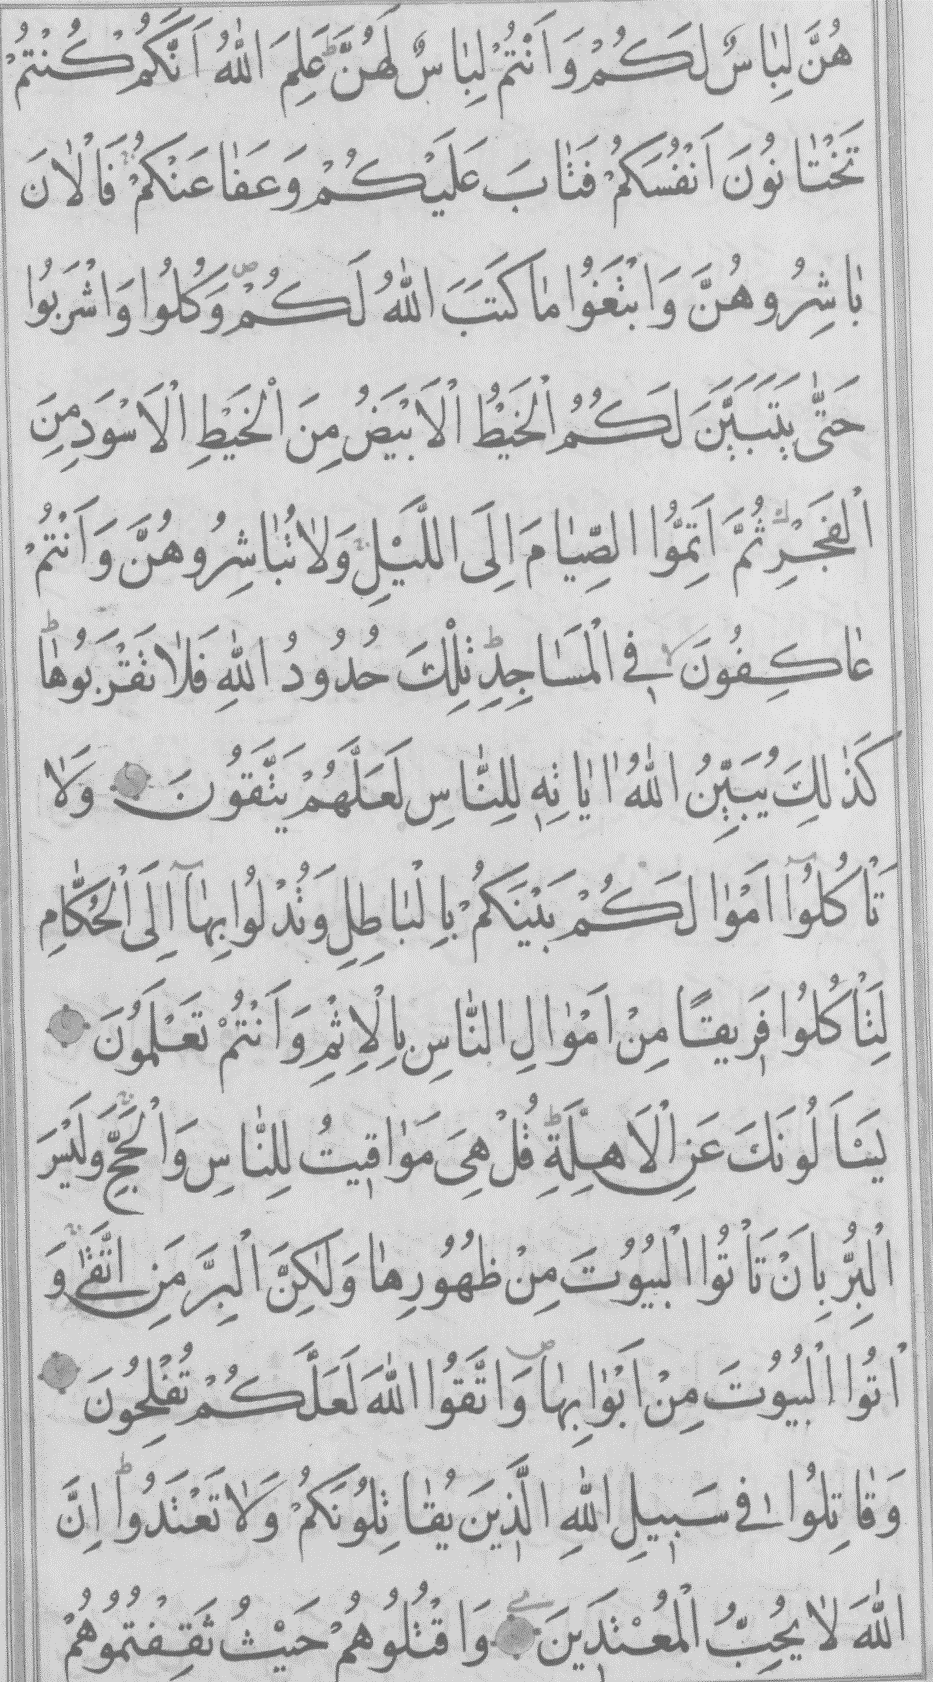 هُنَّ لِبَاسٌ لَكُمْ وَاَنْتُمْ لِبَاسٌ لَهُنَّ عَلِمَ اللّٰهُ اَنَّكُمْ كُنْتُمْ
تَخْتَانُونَ اَنْفُسَكُمْ فَتَابَ عَلَيْكُمْ وَعَفَا عَنْكُمْ فَالْاٰنَ
بَاشِرُوهُنَّ وَابْتَغُوا مَا كَتَبَ اللّٰهُ لَكُمْ وَكُلُوا وَاشْرَبُوا
حَتّٰى يَتَبَيَّنَ لَكُمُ الْخَيْطُ الْاَبْيَضُ مِنَ الْخَيْطِ الْاَسْوَدِ مِنَ
الْفَجْرِ ثُمَّ اَتِمُّوا الصِّيَامَ اِلَى اللَّيْلِ وَلَا تُبَاشِرُوهُنَّ وَاَنْتُمْ
عَاكِفُونَ فِي الْمَسَاجِدِ تِلْكَ حُدُودُ اللّٰهِ فَلَا تَقْرَبُوهَا
كَذٰلِكَ يُبَيِّنُ اللّٰهُ اٰيَاتِهٖ لِلنَّاسِ لَعَلَّهُمْ يَتَّقُونَ وَلَا
تَاْكُلُوا اَمْوَالَكُمْ بَيْنَكُمْ بِالْبَاطِلِ وَتُدْلُوا بِهَا اِلَى الْحُكَّامِ
لِتَاْكُلُوا فَرِيقًا مِنْ اَمْوَالِ النَّاسِ بِالْاِثْمِ وَاَنْتُمْ تَعْلَمُونَ
يَسْاَلُونَكَ عَنِ الْاَهِلَّةِ قُلْ هِيَ مَوَاقِيتُ لِلنَّاسِ وَالْحَجِّ وَلَيْسَ
الْبِرُّ بِاَنْ تَاْتُوا الْبُيُوتَ مِنْ ظُهُورِهَا وَلٰكِنَّ الْبِرَّ مَنِ اتَّقٰى وَ
اْتُوا الْبُيُوتَ مِنْ اَبْوَابِهَا وَاتَّقُوا اللّٰهَ لَعَلَّكُمْ تُفْلِحُونَ
وَقَاتِلُوا فِي سَبِيلِ اللّٰهِ الَّذِينَ يُقَاتِلُونَكُمْ وَلَا تَعْتَدُوا اِنَّ
اللّٰهَ لَا يُحِبُّ الْمُعْتَدِينَ وَاقْتُلُوهُمْ حَيْثُ ثَقِفْتُمُوهُمْ